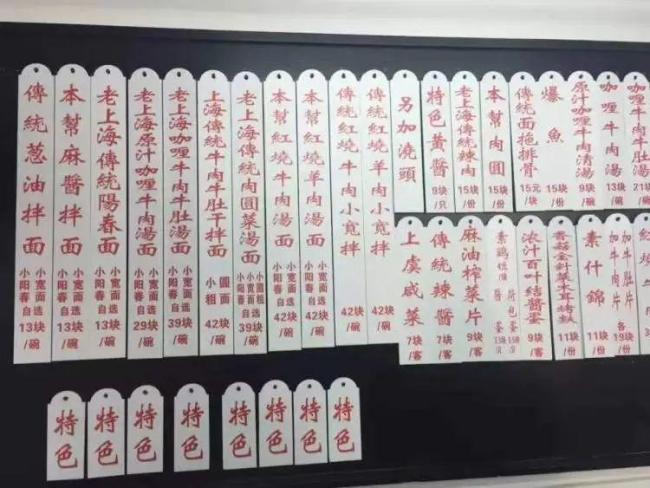 傳統葱油拌面
小阳春
小宽面自选
13块
/碗
本幫麻醬拌面
小阳春
小宽面自选
13块
/碗
老上海傳統陽春面
小阳春
小宽面自选
13块
/碗
老上海原汁咖喱牛肉牛肚湯面
小阳春
小宽面自选
29块
/碗
老上海咖喱牛肉牛肚湯面
小阳春
小宽面自选
39块
/碗
上海傳統牛肉牛肚干拌面
小粗
圆面
42块
/碗
老上海傳統肉圓菜湯面
小阳春
39块
/碗
本幫紅燒牛肉湯面
小阳春
小宽面自选
42块
/碗
本幫紅燒羊肉湯面
小阳春
小宽面自选
42块
/碗
傳統紅燒牛肉小寬拌
42块
/碗
傳統紅燒羊肉小寬拌
42块
/碗
另加澆頭
特色黄醬
9块
/只
老上海傳統辣肉
15块
/份
本幫肉圓
15块
/份
傳統面拖排骨
15元
/块
爆魚
15块
/份
原汁咖喱牛肉清湯
9块
/碗
咖喱牛肉湯
13块
/碗
咖喱牛肉牛肚湯
21块
/碗
上虞咸菜
7块
/客
傳統辣醬
7块
/客
麻油榨菜片
9块
/客
素鷄
荷包蛋
浓汁百叶结醬蛋
9块
/客
香菇金針菜木耳烤麩
11块
/份
素什錦
11块
/份
加牛肉片
加牛肚片
各
19块
/份
紅燒
特色
特色
特色
特色
特色
特色
特色
特色